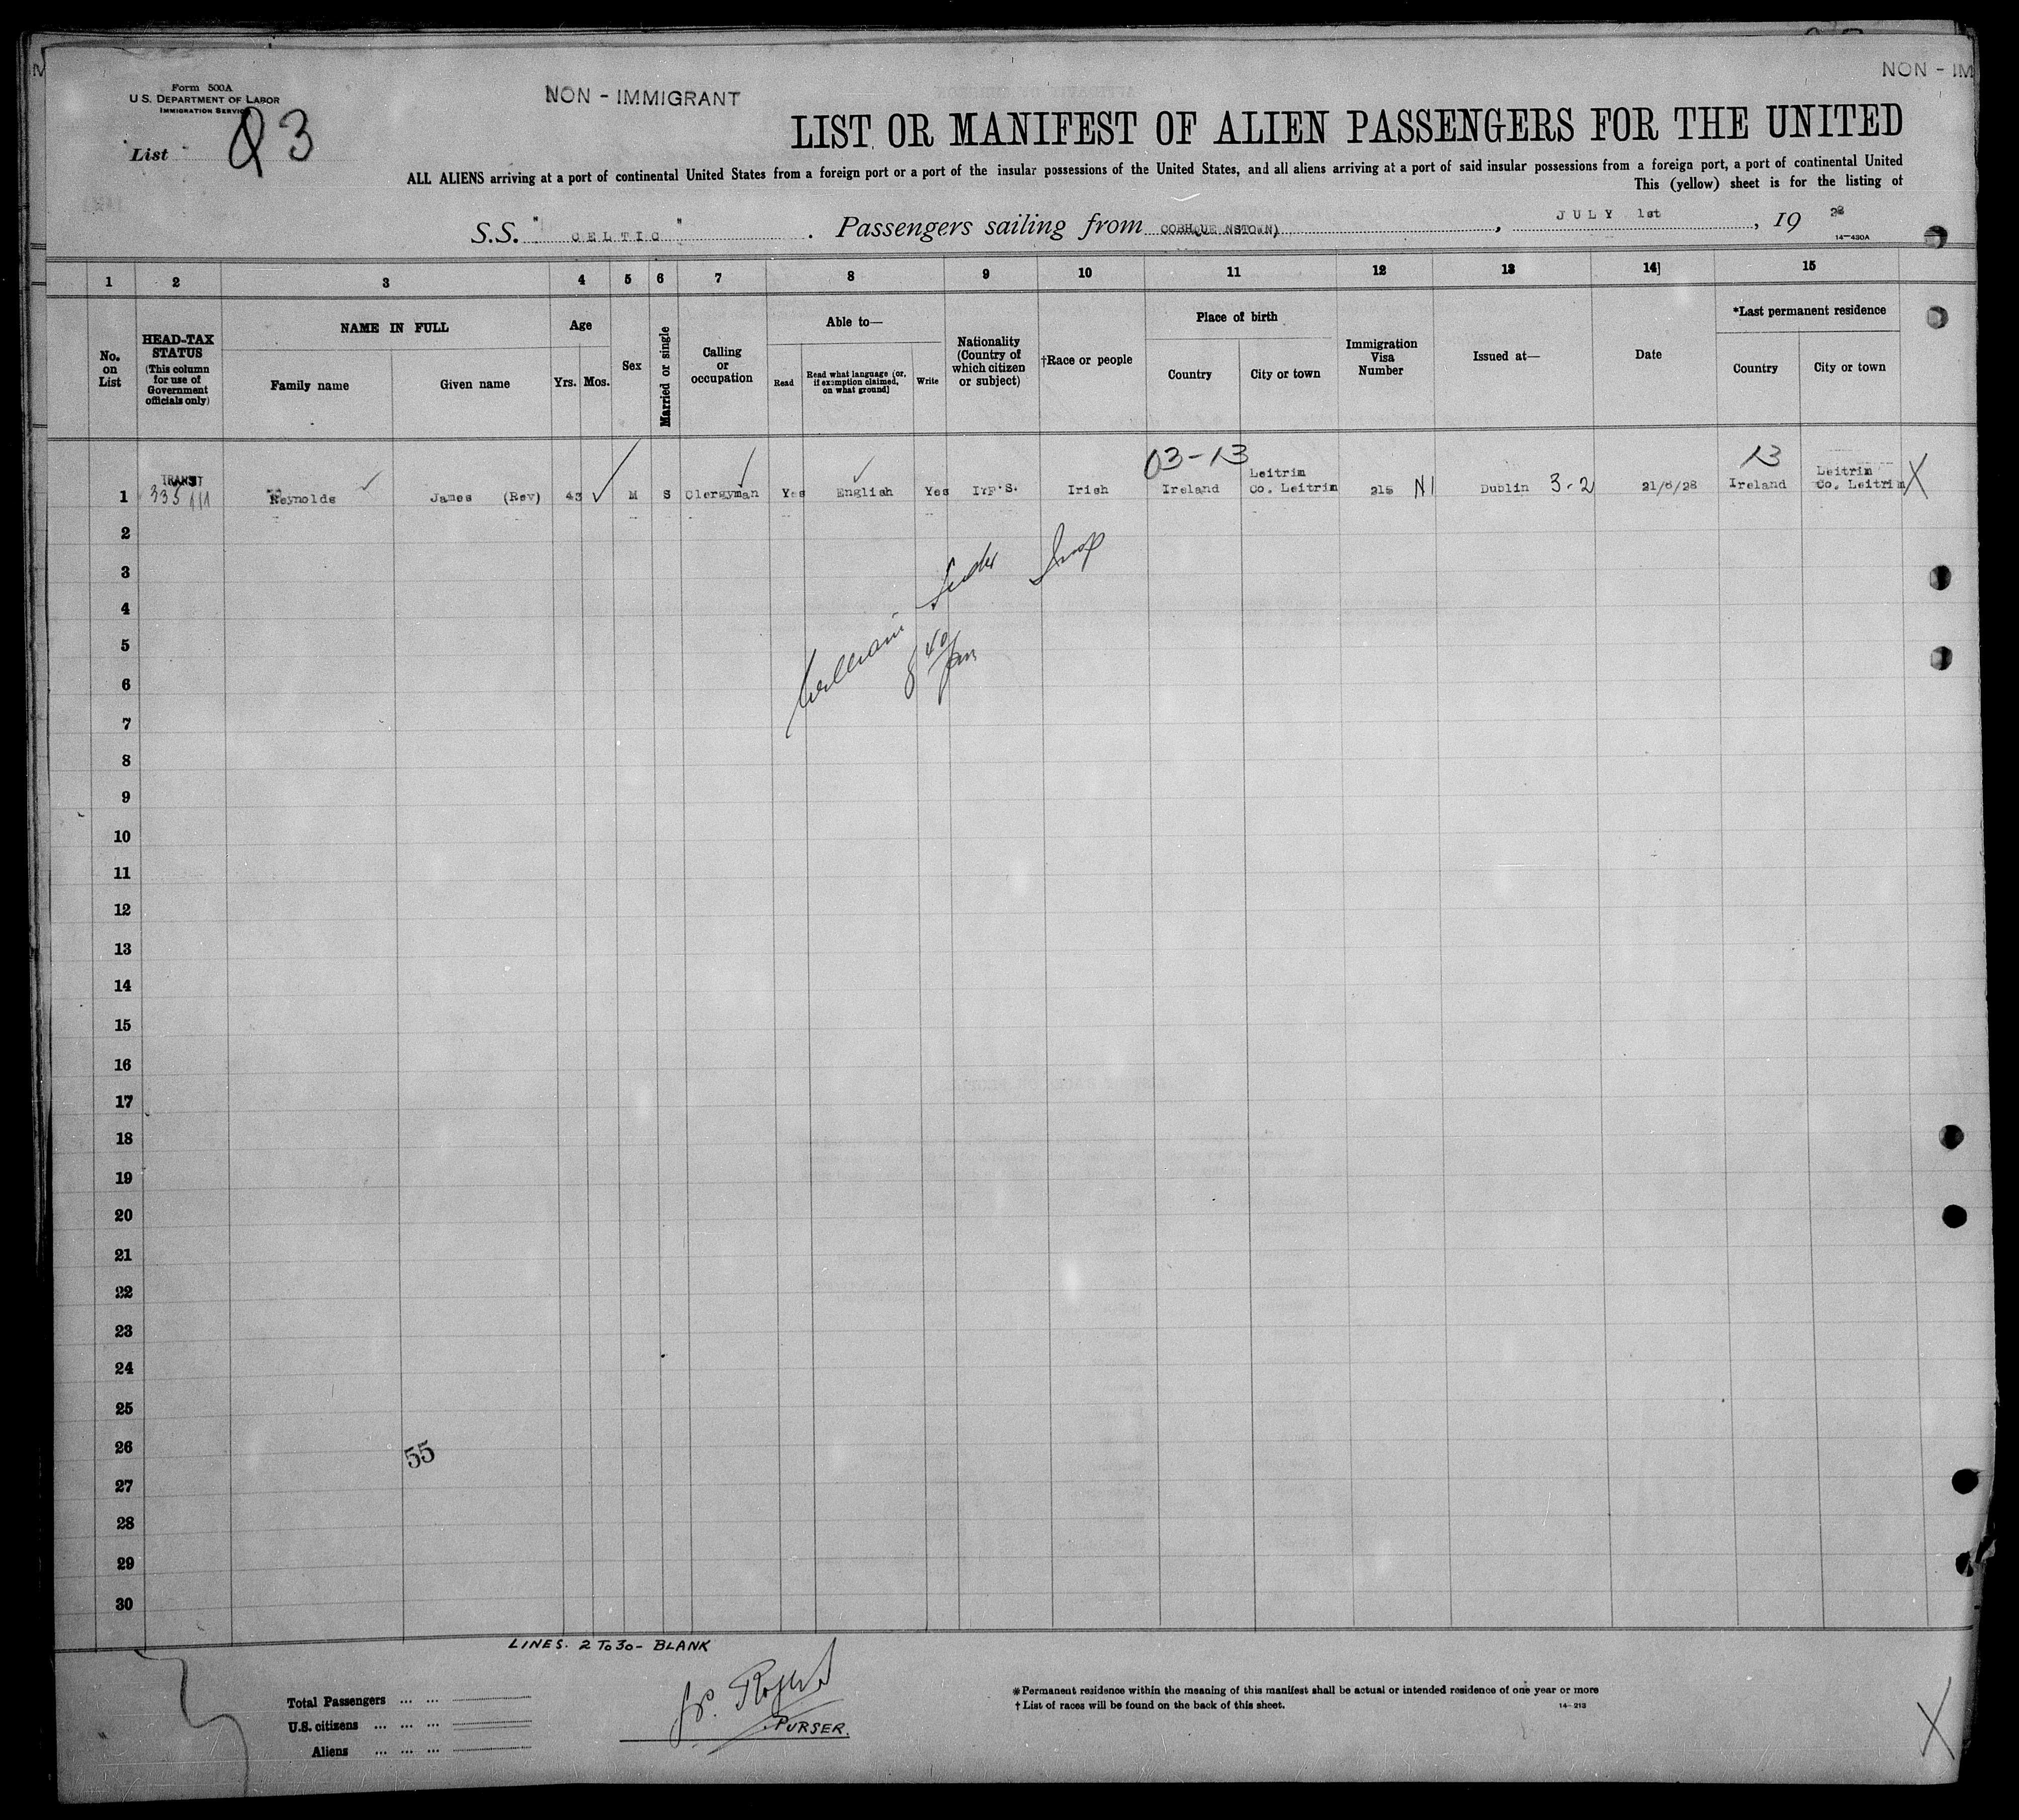 Form 500A
U.S. DEPARTMENT OF LABOR
IMMIGRATION SERVICE
NON - IMMIGRANT
NON - IM
List 3
LIST OR MANIFEST OF ALIEN PASSENGERS FOR THE UNITED
ALL ALIENS arriving at a port of continental United States from a foreign port or a port of the insular possessions of the United States, and all aliens arriving at a port of said insular possessions from a foreign port, a port of continental United
This (yellow) sheet is for the listing of
S.S. " CELTIC " . Passengers sailing from COBH(QUE NSTOWN) , JULY 1st , 19 28
14—430A
1 2 3 4 5 6 7 8 9 10 11 12 13 14] 15
No. on List
HEAD-TAX STATUS (This column for use of Government officials only)
NAME IN FULL
Family name
Given name
Age
Yrs. Mos.
Sex
Married or single
Calling or occupation
Able to—
Read
Read what language [or, if exemption claimed, on what ground]
Write
Nationality (Country of which citizen or subject)
†Race or people
Place of birth
Country
City or town
Immigration Visa Number
Issued at—
Date
*Last permanent residence
Country
City or town
03-13
13
TRANSIT
Leitrim
Leitrim
1 335 Reynolds James (Rev) 43 M S Clergyman Yes English Yes I.F.S. Irish Ireland Co. Leitrim 215 N1 Dublin 3-2 21/6/28 Ireland Co. Leitrim X
2
3
4
5
6
7
8
9
10
11
12
13
14
15
16
17
18
19
20
21
22
23
24
25
26
27
28
29
30
William Insp
8 40
55
LINES. 2 TO 30 - BLANK
Total Passengers ... ...
U.S. citizens ... ... ...
Aliens ... ... ...
PURSER.
*Permanent residence within the meaning of this manifest shall be actual or intended residence of one year or more
†List of races will be found on the back of this sheet.
14—213
X